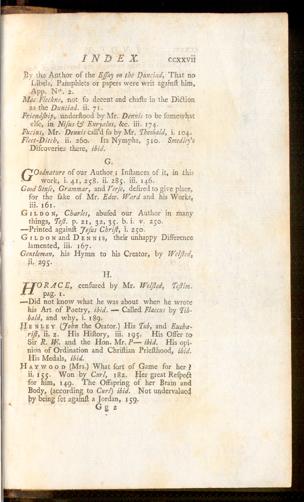 INDEX. ccxxvii
By the Author of the Essay on the Dunciad, That no
Libels, Pamphlets or papers were writ against him,
App. No. 2.
Mac Fleckne, not so decent and chaste in the Diction
as the Dunciad. ii. 71.
Friendship, understood by Mr. Dennis to be somewhat
else, in Nisus & Euryalus, &c. iii. 174.
Furius, Mr. Dennis call'd so by Mr. Theobald, i. 104.
Fleet-Ditch, ii. 260. Its Nymphs, 310. Smedley's
Discoveries there, ibid.
G.
Goodnature of our Author; Instances of it, in this
work, i. 41, 258. ii. 285. iii. 146.
Good Sense, Grammar, and Verse, desired to give place,
for the sake of Mr. Edw. Ward and his Works,
iii. 161.
GILDON, Charles, abused our Author in many
things, Test. p. 21, 32, 35. b. i. v. 250.
—Printed against Jesus Christ, i. 250.
GILDON and DENNIS, their unhappy Difference
lamented, iii. 167.
Gentleman, his Hymn to his Creator, by Welsted,
ii. 295.
H.
HORACE, censured by Mr. Welsted, Testim.
pag. 1.
—Did not know what he was about when he wrote
his Art of Poetry, ibid. — Called Flaccus by Tib-
bald, and why, i. 189.
HENLEY (John the Orator.) His Tub, and Eucha-
rist, ii. 2. His History, iii. 195. His Offer to
Sir R. W. and the Hon. Mr. P— ibid. His opi-
nion of Ordination and Christian Priesthood, ibid.
His Medals, ibid.
HAYWOOD (Mrs.) What sort of Game for her?
ii. 155. Won by Curl, 182. Her great Respect
for him, 149. The Offspring of her Brain and
Body, (according to Curl) ibid. Not undervalued
by being set against a Jordan, 159.
Gg2